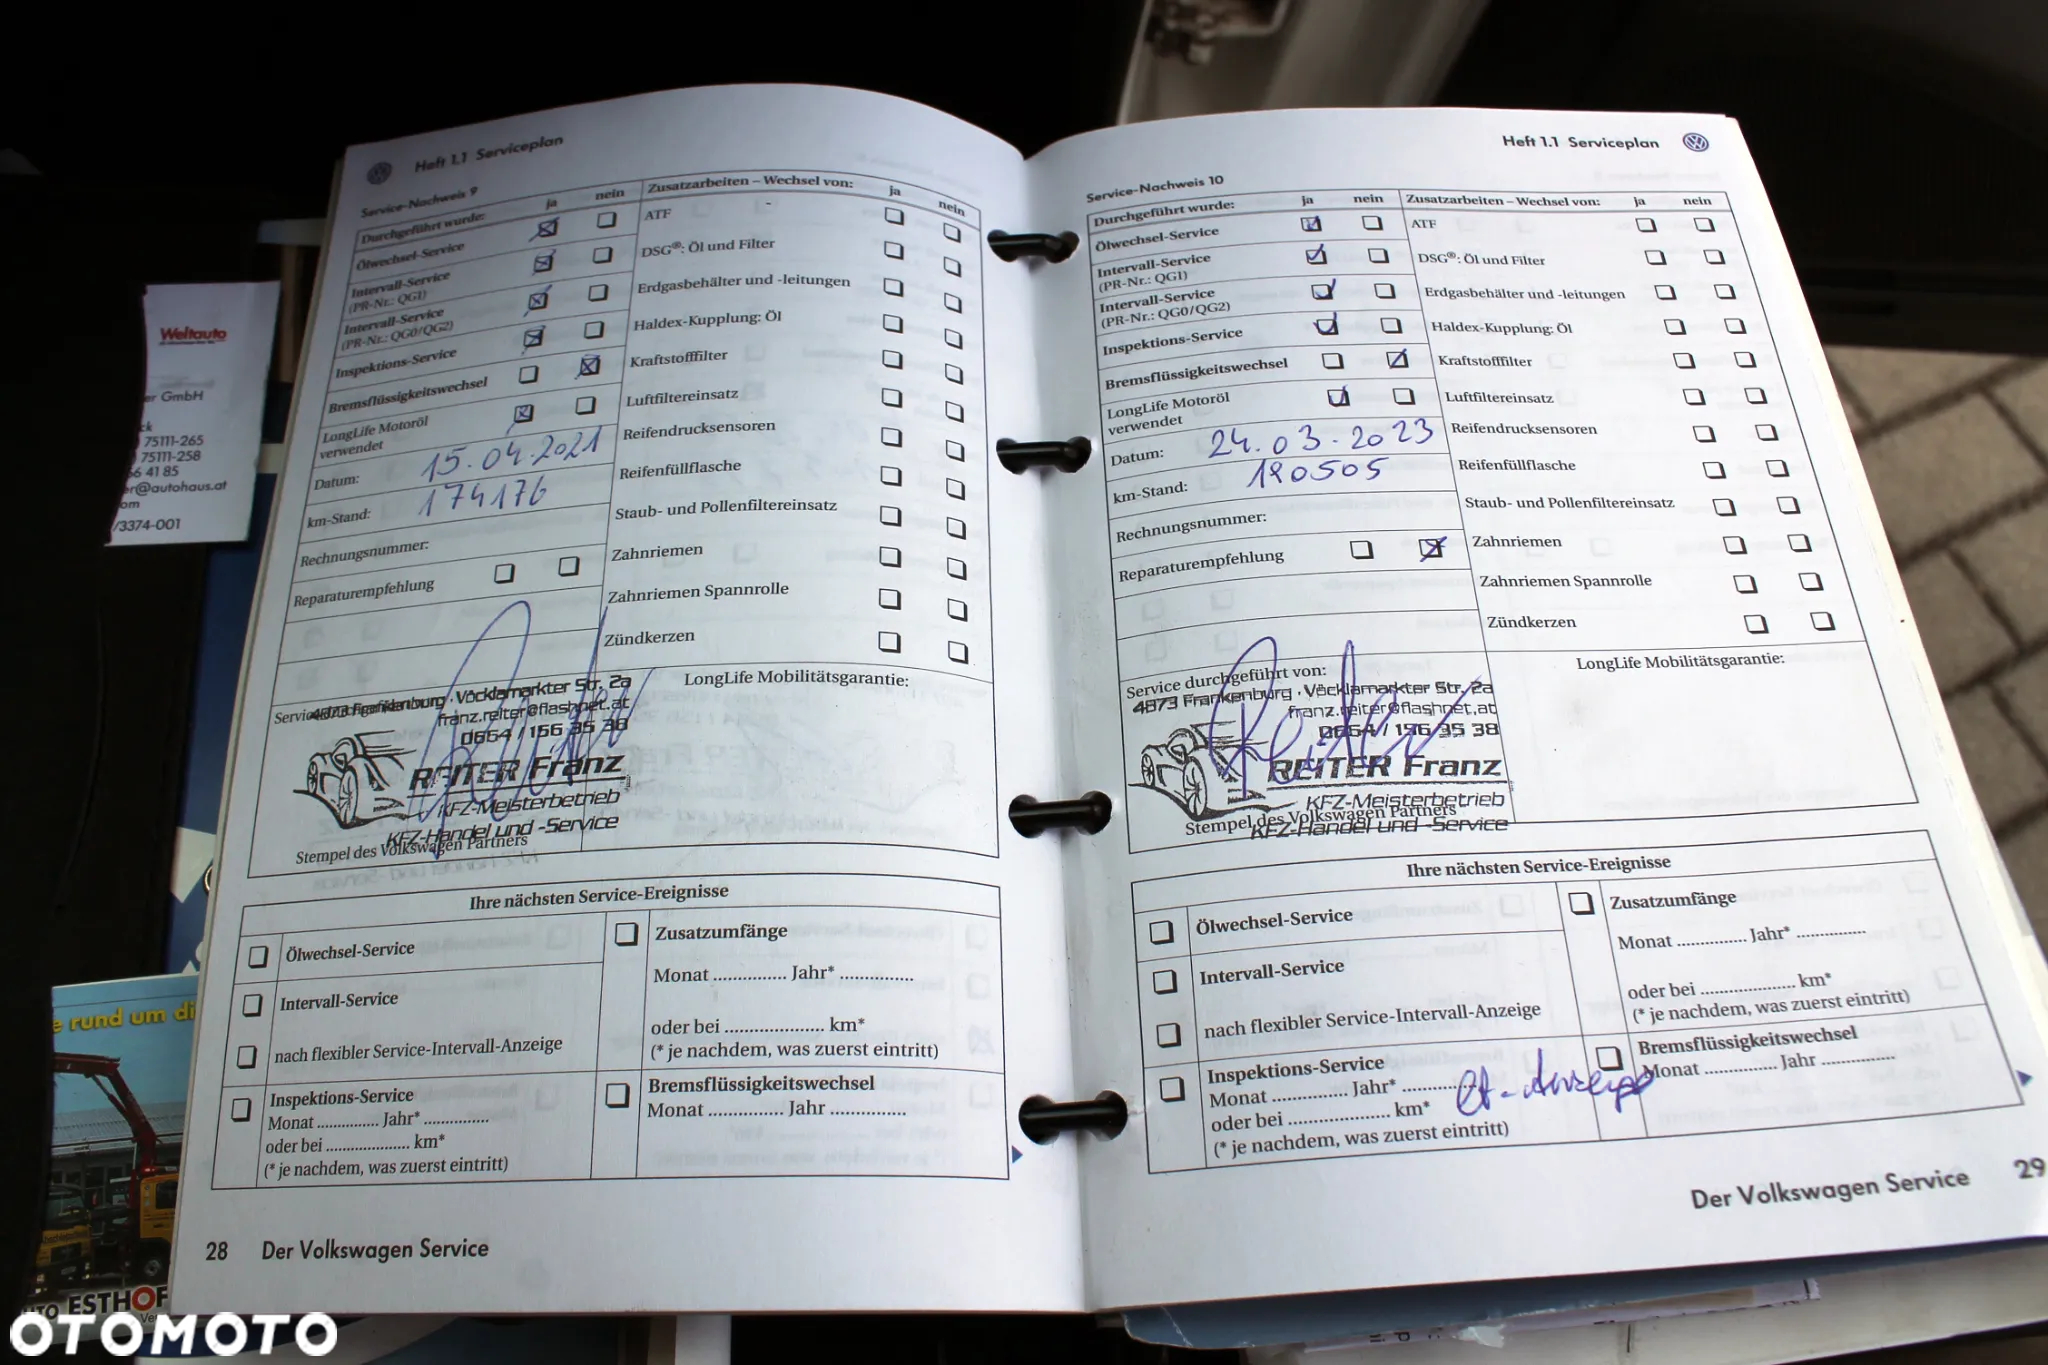 Heft 1.1 Serviceplan
Service-Nachweis 9
Durchgeführt wurde: ja nein
Ölwechsel-Service
Intervall-Service
(PR-Nr.: QG1)
Intervall-Service
(PR-Nr.: QG0/QG2)
Inspektions-Service
Bremsflüssigkeitswechsel
LongLife Motoröl
verwendet
Datum: 15.04.2021
km-Stand: 174176
Rechnungsnummer:
Reparaturempfehlung
Zusatzarbeiten – Wechsel von: ja nein
ATF
DSG®: Öl und Filter
Erdgasbehälter und -leitungen
Haldex-Kupplung: Öl
Kraftstofffilter
Luftfiltereinsatz
Reifendrucksensoren
Reifenfüllflasche
Staub- und Pollenfiltereinsatz
Zahnriemen
Zahnriemen Spannrolle
Zündkerzen
4873 Frankenburg · Vöcklamarkter Str. 2a
franz.reiter@flashnet.at
0664 / 156 35 38
REITER Franz
KFZ-Meisterbetrieb
KFZ-Handel und -Service
Stempel des Volkswagen Partners
LongLife Mobilitätsgarantie:
Ihre nächsten Service-Ereignisse
Ölwechsel-Service
Intervall-Service
nach flexibler Service-Intervall-Anzeige
Inspektions-Service
Monat ............... Jahr* ................
oder bei ..................... km*
(* je nachdem, was zuerst eintritt)
Zusatzumfänge
Monat ............... Jahr* ...............
oder bei ..................... km*
(* je nachdem, was zuerst eintritt)
Bremsflüssigkeitswechsel
Monat ............... Jahr ...............
28 Der Volkswagen Service
Heft 1.1 Serviceplan
Service-Nachweis 10
Durchgeführt wurde: ja nein
Ölwechsel-Service
Intervall-Service
(PR-Nr.: QG1)
Intervall-Service
(PR-Nr.: QG0/QG2)
Inspektions-Service
Bremsflüssigkeitswechsel
LongLife Motoröl
verwendet
Datum: 24.03.2023
km-Stand: 190505
Rechnungsnummer:
Reparaturempfehlung
Zusatzarbeiten – Wechsel von: ja nein
ATF
DSG®: Öl und Filter
Erdgasbehälter und -leitungen
Haldex-Kupplung: Öl
Kraftstofffilter
Luftfiltereinsatz
Reifendrucksensoren
Reifenfüllflasche
Staub- und Pollenfiltereinsatz
Zahnriemen
Zahnriemen Spannrolle
Zündkerzen
Service durchgeführt von:
4873 Frankenburg · Vöcklamarkter Str. 2a
franz.reiter@flashnet.at
0664 / 156 35 38
Reiter
REITER Franz
KFZ-Meisterbetrieb
Stempel des Volkswagen Partners
KFZ-Handel und -Service
LongLife Mobilitätsgarantie:
Ihre nächsten Service-Ereignisse
Ölwechsel-Service
Intervall-Service
nach flexibler Service-Intervall-Anzeige
Inspektions-Service
Monat ............... Jahr* ...............
oder bei ..................... km*
(* je nachdem, was zuerst eintritt)
Zusatzumfänge
Monat ............... Jahr* ...............
oder bei ..................... km*
(* je nachdem, was zuerst eintritt)
Bremsflüssigkeitswechsel
Monat ............... Jahr ...............
Der Volkswagen Service 29
Weltauto
er GmbH
75111-265
75111-258
66 41 85
er@autohaus.at
om
/3374-001
e rund um di
ESTHOF
OTOMOTO